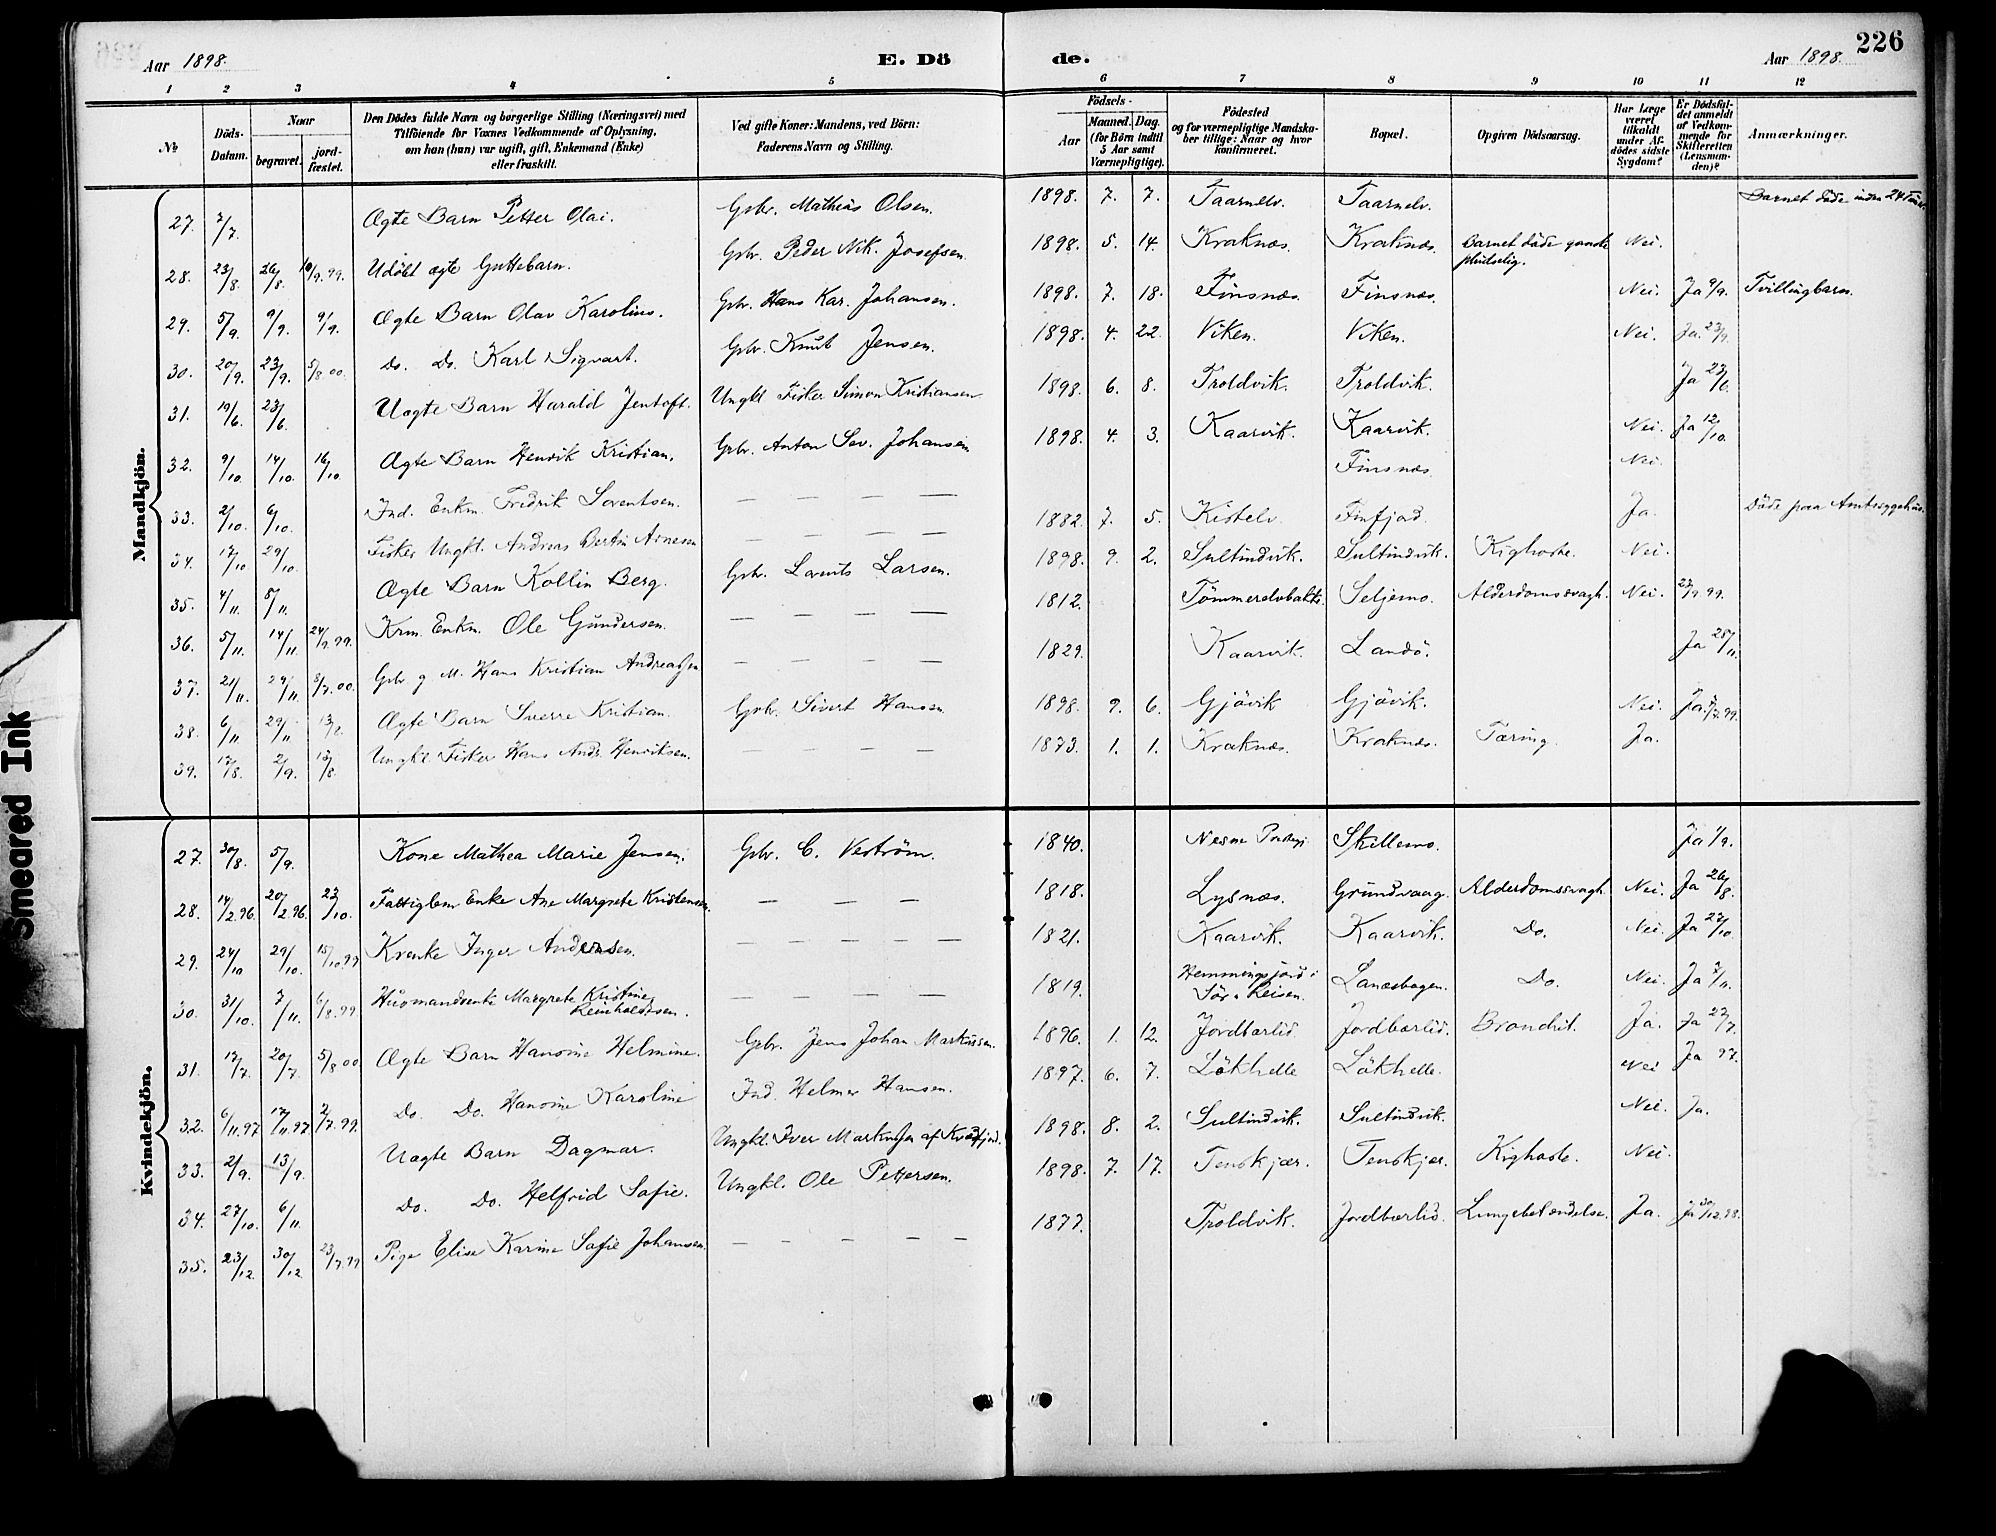 226
Aar 1898.
E. Döde.
Aar 1898.
1 2 3 4 5 6 7 8 9 10 11 12
No
Döds-Datum.
Naar
begravet.
jord-fæstet.
Den Dödes fulde Navn og borgerlige Stilling (Næringsvei) med
Tilföiende for Voxnes Vedkommende af Oplysning,
om han (hun) var ugift, gift, Enkemand (Enke)
eller fraskilt.
Ved gifte Koner: Mandens, ved Börn:
Faderens Navn og Stilling.
Födsels-
Aar
Maaned. Dag.
(for Börn indtil
5 Aar samt
Værnepligtige).
Födested
og for værnepligtige Mandska-
ber tillige: Naar og hvor
konfirmeret.
Bopæl.
Opgiven Dödsaarsag.
Har Læge
været
tilkaldt
under Af-
dödes sidste
Sygdom?
Er Dödsfal-
det anmeldt
af Vedkom-
mende for
Skifteretten
(Lensman-
den)?
Anmærkninger.
Mandkjön.
27. 7/7 Ægte Barn Petter Olai. Gbr. Mathias Olsen. 1898. 7. 7. Taarnelv. Taarnelv. Barnet döde inden 24 Timer.
28. 23/8 26/8 Udöbt ægte Guttebarn. Gbr. Peder Nik. Josefsen. 1898. 5. 14. Kraknæs. Kraknæs. Barnet döde ganske pludselig. Nei.
29. 5/9 9/9. 9/9. Ægte Barn Olav Karolius. Gbr. Hans Kar. Johansen. 1898. 7. 18. Finsnæs. Finsnæs. Nei. Ja 9/9. Tvillingbarn.
30. 20/9. 23/9. 5/8.00. Do. Do. Karl Sigvart. Gbr. Knut Jensen. 1898. 4. 22. Viken. Viken. Nei. Ja. 23/9.
31. 19/6. 23/6. Uægte Barn Harald Jentoft. Ungkl Fisker Simon Kristiansen 1898. 6. 8. Troldvik. Troldvik. Ja 23/6.
32. 9/10. 14/10. 16/10. Ægte Barn Henrik Kristian. Gbr. Anton Sev. Johansen 1898. 4. 3. Kaarvik. Kaarvik. Nei. Ja 12/10.
33. 2/10. 6/10. Ind. Enkm. Fredrik Lorentsen. — — — — Finsnæs. Nei.
34. 17/10 29/10. Fisker Ungkl. Andreas Bertin Arnesen — — — — 1882. 7. 5. Kistelv. Finfjord. Ja. Döde paa Amtssygehus.
35. 4/11. 8/11. Ægte Barn Kollin Berg. Gbr. Lorents Larsen. 1898. 9. 2. Sultindvik. Sultindvik. Kighoste. Nei.
36. 5/11. 14/11. 24/9.99. Krm. Enkm. Ole Gundersen. — — — — 1812. Tömmerelvbakke. Seljemo. Alderdomssvagh. Nei. 27/9 99.
37. 21/11. 29/11. 8/7.00. Gbr g M. Hans Kristian Andreassen — — — — 1829. Kaarvik. Landö. Ja 28/11.
38. 6/11 29/11 13/2. Ægte Barn Sverre Kristian. Gbr. Sivert Hansen 1898. 9. 6. Gjövik Gjövik. Nei. Ja.
39. 17/8. 2/9. 13/8. Ungkl. Fisker Hans Andr. Henriksen. — — — — 1873. 1. 1. Kraknæs. Kraknæs. Tæring. Ja.
Kvindekjön.
27. 30/8. 5/9. Kone Mathea Marie Jensen. Gbr. C. Veström. 1840. Nesne Skillemo. Ja 1/9.
28. 14/2.96. 20/2.96. 23/10. Fattiglem Enke Ane Margrete Kristensen. — — — — 1818. Lysnæs. Grundvaag. Alderdomssvagh. Nei. Ja 26/8.
29. 24/10 29/10. 15/10.99 Krenke Inger Andersen. — — — — 1821. Kaarvik. Kaarvik. Do. Nei. Ja 27/10.
30. 31/10. 7/11. 6/8.99 Husmandsenke Margrete Kristine Reinholdtsen. — — — — 1819. Hemmingsjord i Sör-Reisen. Lanesbogen. Do. Nei. Ja 7/11.
31. 17/7. 20/7. 5/8 00 Ægte Barn Hansine Helmine. Gbr. Jens Johan Markussen. 1896. 1. 12. Jordbærlid. Jordbærlid. Bronchit. Ja. Ja 23/7.
32. 6/11.97 17/11.97 2/7.99. Do. Do. Hansine Karoline Ind. Helmer Hansen. 1897. 6. 7. Lökhelle Lökhelle. Nei Ja 97.
33. 2/9. 13/9. Uægte Barn Dagmar. Ungkl. Iver Markussen af Kvæfjord. 1898. 8. 2. Sultindvik. Sultindvik. Nei. Ja.
34. 27/10. 6/11. Do. Do. Helfrid Safie. Ungkl. Ole Pettersen. 1898. 7. 17. Tenskjær. Tenskjær. Kighoste. Nei.
35. 23/12. 30/12. 23/9.99 Pige Elise Karine Safie Johansen. — — — — — 1877. Troldvik. Jordbærlid. Lungebetændelse. Ja. Ja 30/12.98.
Smeared Ink